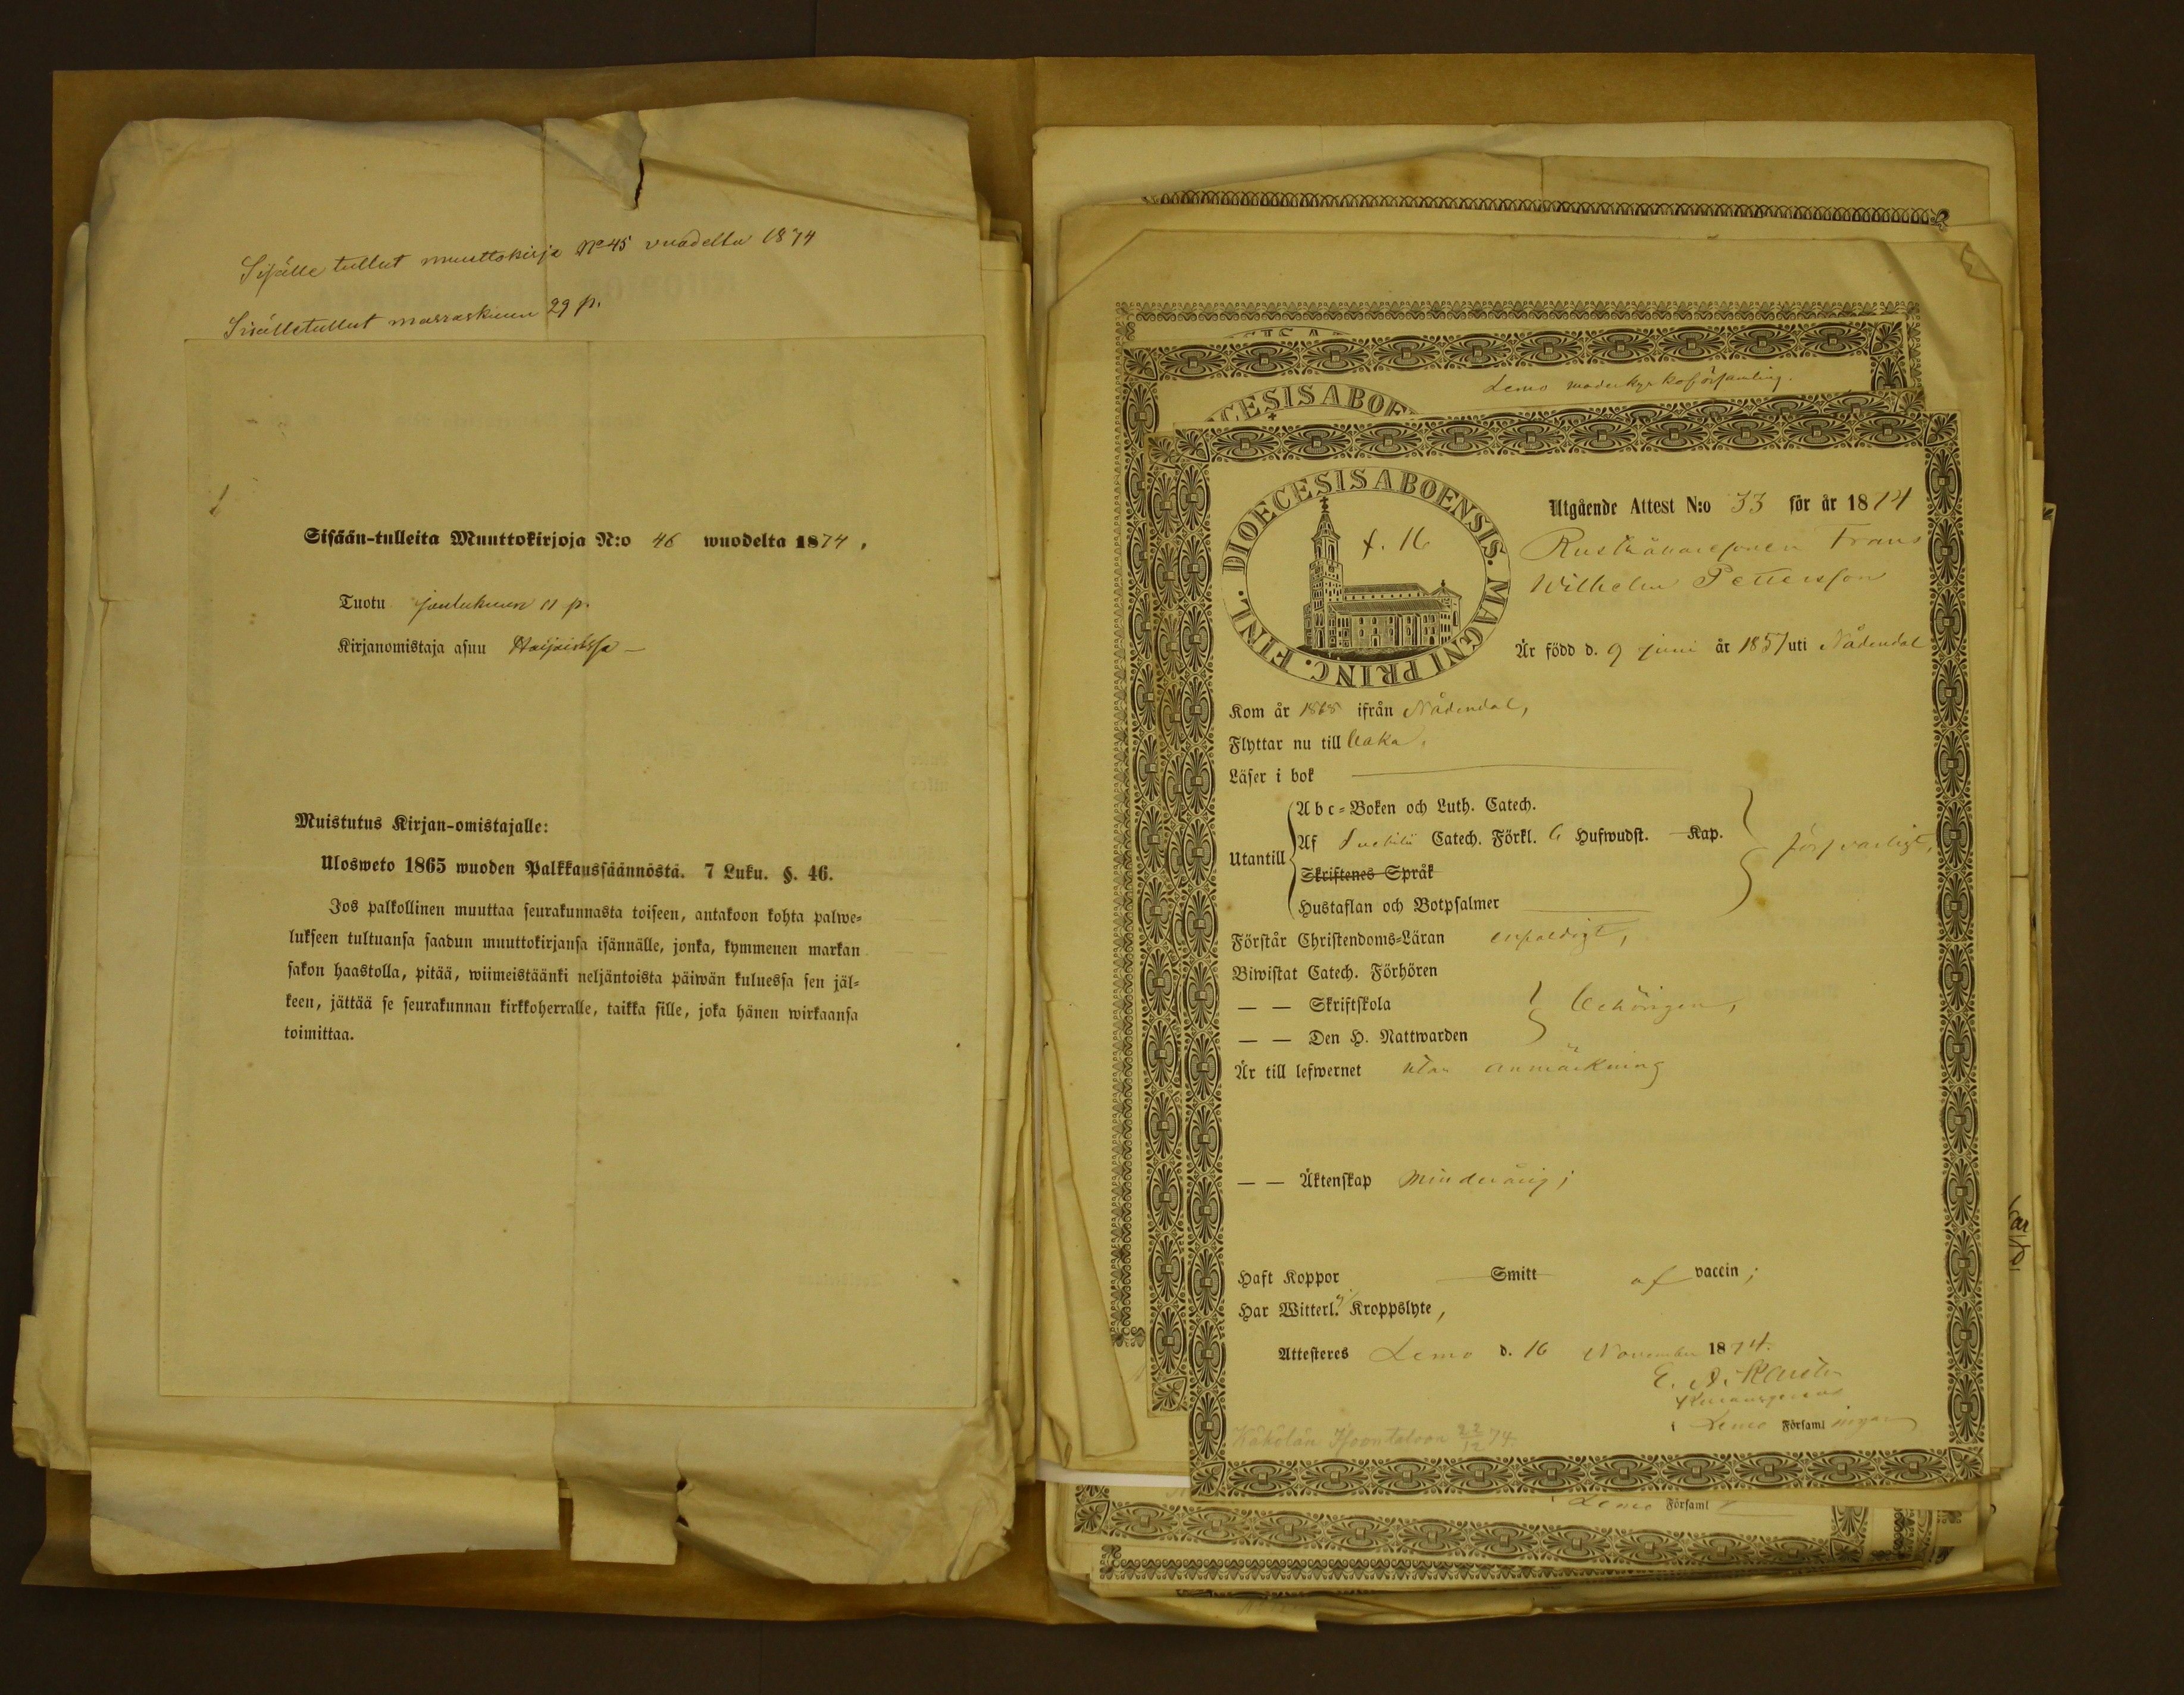 Sisälle tullut muuttokirja No 45 vuodelta 1874
Sisälletullut marraskuun 29 p.
Sisään-tulleita Muuttokirjoja N:o 46 wuodelta 1874.
Tuotu joulukuun 11 p.
Kirjanomistaja asuu
Muistutus Kirjan-omistajalle:
Ulosweto 1865 wuoden Palkkaussäännöstä. 7 Luku. §. 46.
Jos palkollinen muuttaa seurakunnasta toiseen, antakoon kohta palwe=
lukseen tultuansa saadun muuttokirjansa isännälle, jonka, kymmenen markan
sakon haastolla, pitää, wiimeistäänki neljäntoista päiwän kuluessa sen jäl=
keen, jättää se seurakunnan kirkkoherralle, taikka sille, joka hänen wirkaansa
toimittaa.
Lemo moderkyrkoförsamling.
CESIS ABOE
DIOECESIS ABOENSIS. MAGNI PRINC. FINL.
f. 16
Utgående Attest N:o 33 för år 1874
Frans
Wilhelm Pettersson
Är född d. 9 juni år 1857 uti Nådendal
Kom år 1868 ifrån Nådendal,
Flyttar nu till
Läser i bok
Utantill
Abc=Boken och Luth. Catech.
Af Svebilii Catech. Förkl. 6 Hufwudst. Kap.
försvarligt,
Skriftenes Språk
Hustaflan och Botpsalmer
Förstår Christendoms=Läran enfaldigt,
Biwistat Catech. Förhören
— — Skriftskola
behörigen,
— — Den H. Nattwarden
Är till lefwernet utan anmärkning
— — Äktenskap minderårig;
Haft Koppor Smitt af vaccin;
Har Witterl. ej Kroppslyte,
Attesteres Lemo d. 16 November 1874.
E. A.
i Lemo Församl ingar
22/12 74.
Lemo Församl